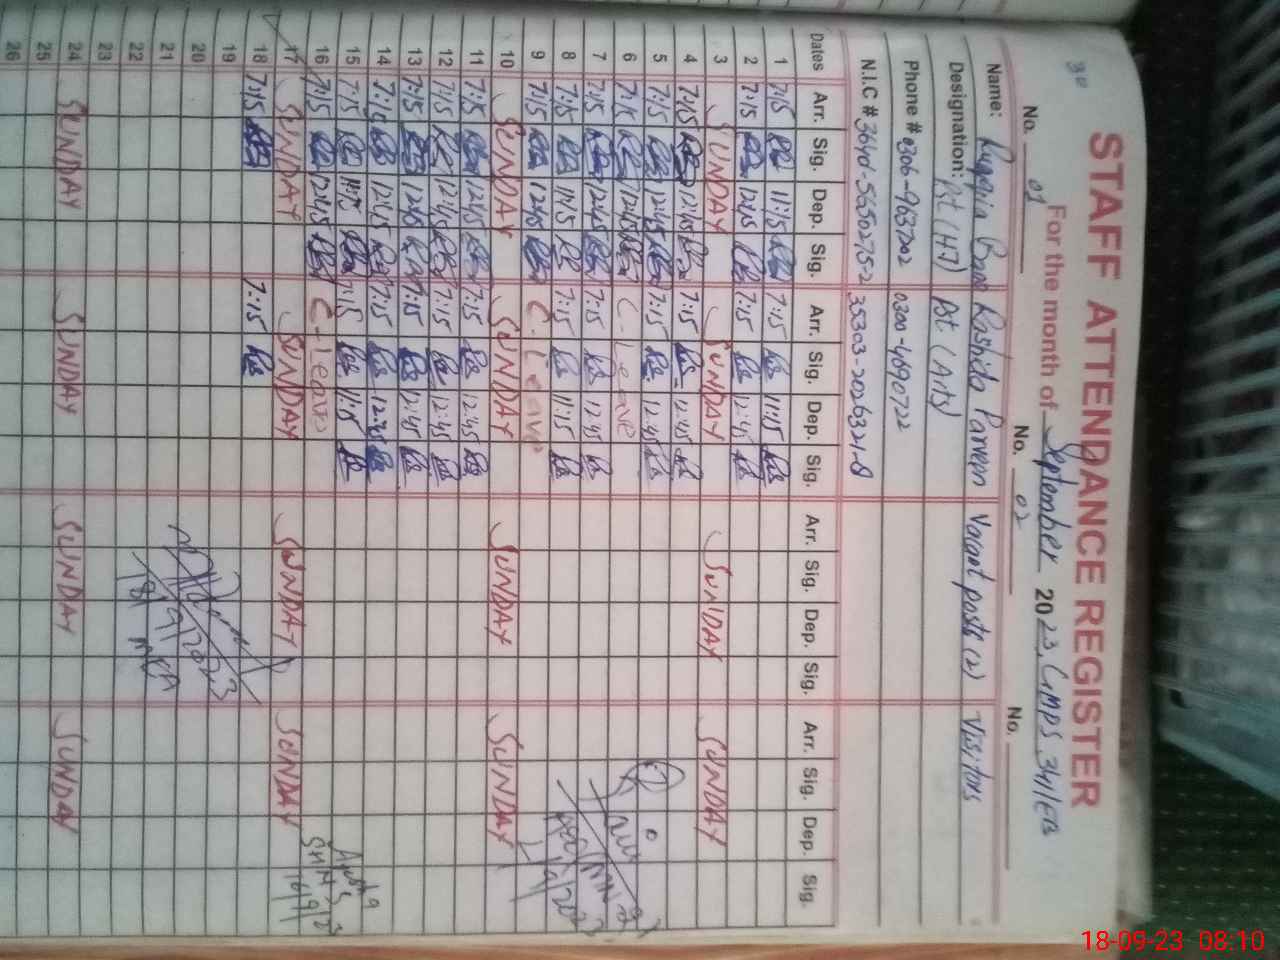 STAFF ATTENDANCE REGISTER
For the month of September 2023, GMPS 341/EB
No. 01 No. 02 No.
Name: Ruqqia Bano Rashida Parveen Vacant posts (2) Visitors
Designation: Pst (H.T) Pst (Arts)
Phone # 0306-9637202 0300-4690722
N.I.C # 35303-2026321-8
Dates Arr. Sig. Dep. Sig. Arr. Sig. Dep. Sig. Arr. Sig. Dep. Sig. Arr. Sig. Dep. Sig.
1 7:15 11:15 7:15 11:15
2 7:15 12:45 7:15 12:45
3 SUNDAY SUNDAY SUNDAY SUNDAY
4 7:15 12:45 7:15 12:45
5 7:15 12:45 7:15 12:45
6 7:15 12:45 C-leave
7 7:15 12:45 7:15 12:45
8 7:15 11:15 7:15 11:15
9 7:15 12:45 C-leave
10 SUNDAY SUNDAY SUNDAY SUNDAY
11 7:15 12:45 7:15 12:45
12 7:15 12:45 7:15 12:45
13 7:15 12:45 7:15 12:45
14 7:15 12:45 7:15 12:45
15 7:15 11:15 7:15 11:15
16 7:15 12:45 C-leave 16/9/23
17 SUNDAY SUNDAY SUNDAY SUNDAY
18 7:15 7:15
19
20
21
22 18/9/2023
23
24 SUNDAY SUNDAY SUNDAY SUNDAY
25
26
18-09-23 08:10